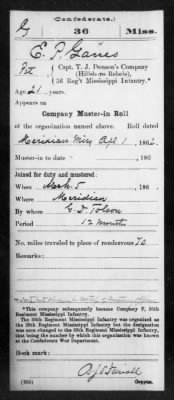 (Confederate.)
G 36 Miss.
E. P. Gaines
Pvt, Capt. T. J. Denson's Company
(Hillsboro Rebels),
36 Reg't Mississippi Infantry.*
Age 21 years.
Appears on
Company Muster-in Roll
of the organization named above. Roll dated
Meridian Miss, Apl 1, 1862.
Muster-in to date , 186
Joined for duty and mustered:
When Mch 5, 186 .
Where Meridian
By whom Tolson
Period 12 months
No. miles traveled to place of rendezvous 70
Remarks:
*This company subsequently became Company F, 36th
Regiment Mississippi Infantry.
The 36th Regiment Mississippi Infantry was organized as
the Regiment Mississippi Infantry but the designation
was seen changed to the 36th Regiment Mississippi Infantry,
that being the number by which this organization was known
at the Confederate War Department.
Book mark:
(935) Copyist.